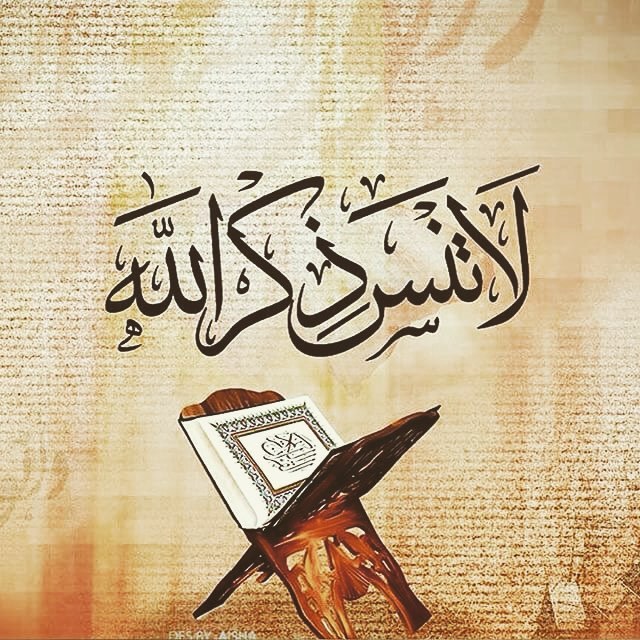 لَا تَنْسَ ذِكْرَ اللَّه
DES BY AISHA